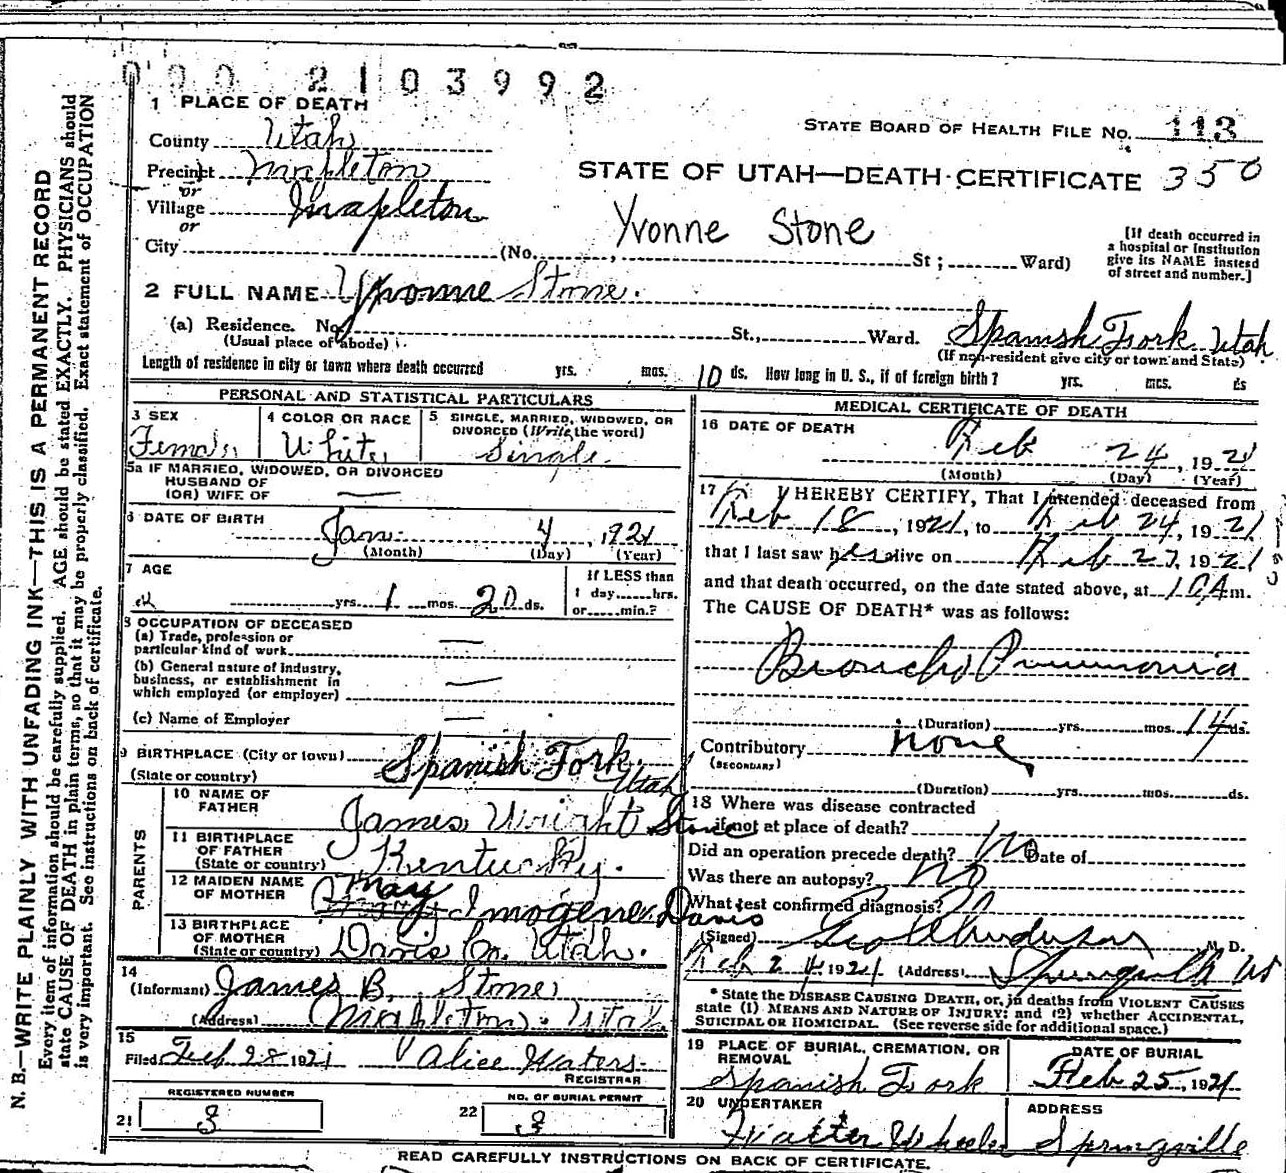 000 2103992
1 PLACE OF DEATH
STATE BOARD OF HEALTH FILE NO. 113
County Utah
Precinct Mapleton
STATE OF UTAH—DEATH CERTIFICATE 350
or
Village Mapleton
or
Yvonne Stone
City (No. , St; Ward)
[If death occurred in
a hospital or institution
give its NAME instead
of street and number.]
2 FULL NAME Yvonne Stone.
(a) Residence. No. St., Ward. Spanish Fork Utah
(Usual place of abode) (If non-resident give city or town and State)
Length of residence in city or town where death occurred yrs. mos. 10 ds. How long in U. S., if of foreign birth? yrs. mos. ds
PERSONAL AND STATISTICAL PARTICULARS
3 SEX
Female
4 COLOR OR RACE
White
5 SINGLE, MARRIED, WIDOWED, OR
DIVORCED (Write the word)
Single.
5a IF MARRIED, WIDOWED, OR DIVORCED
HUSBAND OF
(OR) WIFE OF —
6 DATE OF BIRTH Jan. 4, 1921
(Month) (Day) (Year)
7 AGE
yrs. 1 mos. 20 ds.
If LESS than
1 day hrs.
or min.?
8 OCCUPATION OF DECEASED
(a) Trade, profession or
particular kind of work —
(b) General nature of industry,
business, or establishment in
which employed (or employer) —
(c) Name of Employer —
9 BIRTHPLACE (City or town) Spanish Fork.
(State or country) Utah
PARENTS
10 NAME OF
FATHER James Wright Stone
11 BIRTHPLACE
OF FATHER
(State or country) Kentucky.
12 MAIDEN NAME
OF MOTHER May Imogene Davis
13 BIRTHPLACE
OF MOTHER
(State or country) Davis Co. Utah.
14
(Informant) James B. Stone
(Address) Mapleton. Utah
15
Filed Feb 28 1921 Alice Waters.
REGISTRAR
REGISTERED NUMBER
21 3
NO. OF BURIAL PERMIT
22 3
MEDICAL CERTIFICATE OF DEATH
16 DATE OF DEATH
Feb 24, 1921
(Month) (Day) (Year)
17 I HEREBY CERTIFY, That I attended deceased from
Feb 18, 1921, to Feb 24, 1921
that I last saw her alive on Feb 23, 1921
and that death occurred, on the date stated above, at 10 A m.
The CAUSE OF DEATH* was as follows:
Broncho Pneumonia
(Duration) yrs. mos. 14 ds.
Contributory none
(SECONDARY)
(Duration) yrs. mos. ds.
18 Where was disease contracted
if not at place of death?
Did an operation precede death? No Date of
Was there an autopsy? No
What test confirmed diagnosis?
(Signed) Geo Anderson M. D.
Feb 24 1921 (Address) Springville Ut
* State the DISEASE CAUSING DEATH, or, in deaths from VIOLENT CAUSES
state (1) MEANS AND NATURE OF INJURY; and (2) whether ACCIDENTAL,
SUICIDAL OR HOMICIDAL. (See reverse side for additional space.)
19 PLACE OF BURIAL, CREMATION, OR
REMOVAL
Spanish Fork
DATE OF BURIAL
Feb 25, 1921
20 UNDERTAKER
Walter Wheeler
ADDRESS
Springville
READ CAREFULLY INSTRUCTIONS ON BACK OF CERTIFICATE.
N. B.—WRITE PLAINLY WITH UNFADING INK—THIS IS A PERMANENT RECORD
Every item of information should be carefully supplied. AGE should be stated EXACTLY. PHYSICIANS should
state CAUSE OF DEATH in plain terms, so that it may be properly classified. Exact statement of OCCUPATION
is very important. See instructions on back of certificate.